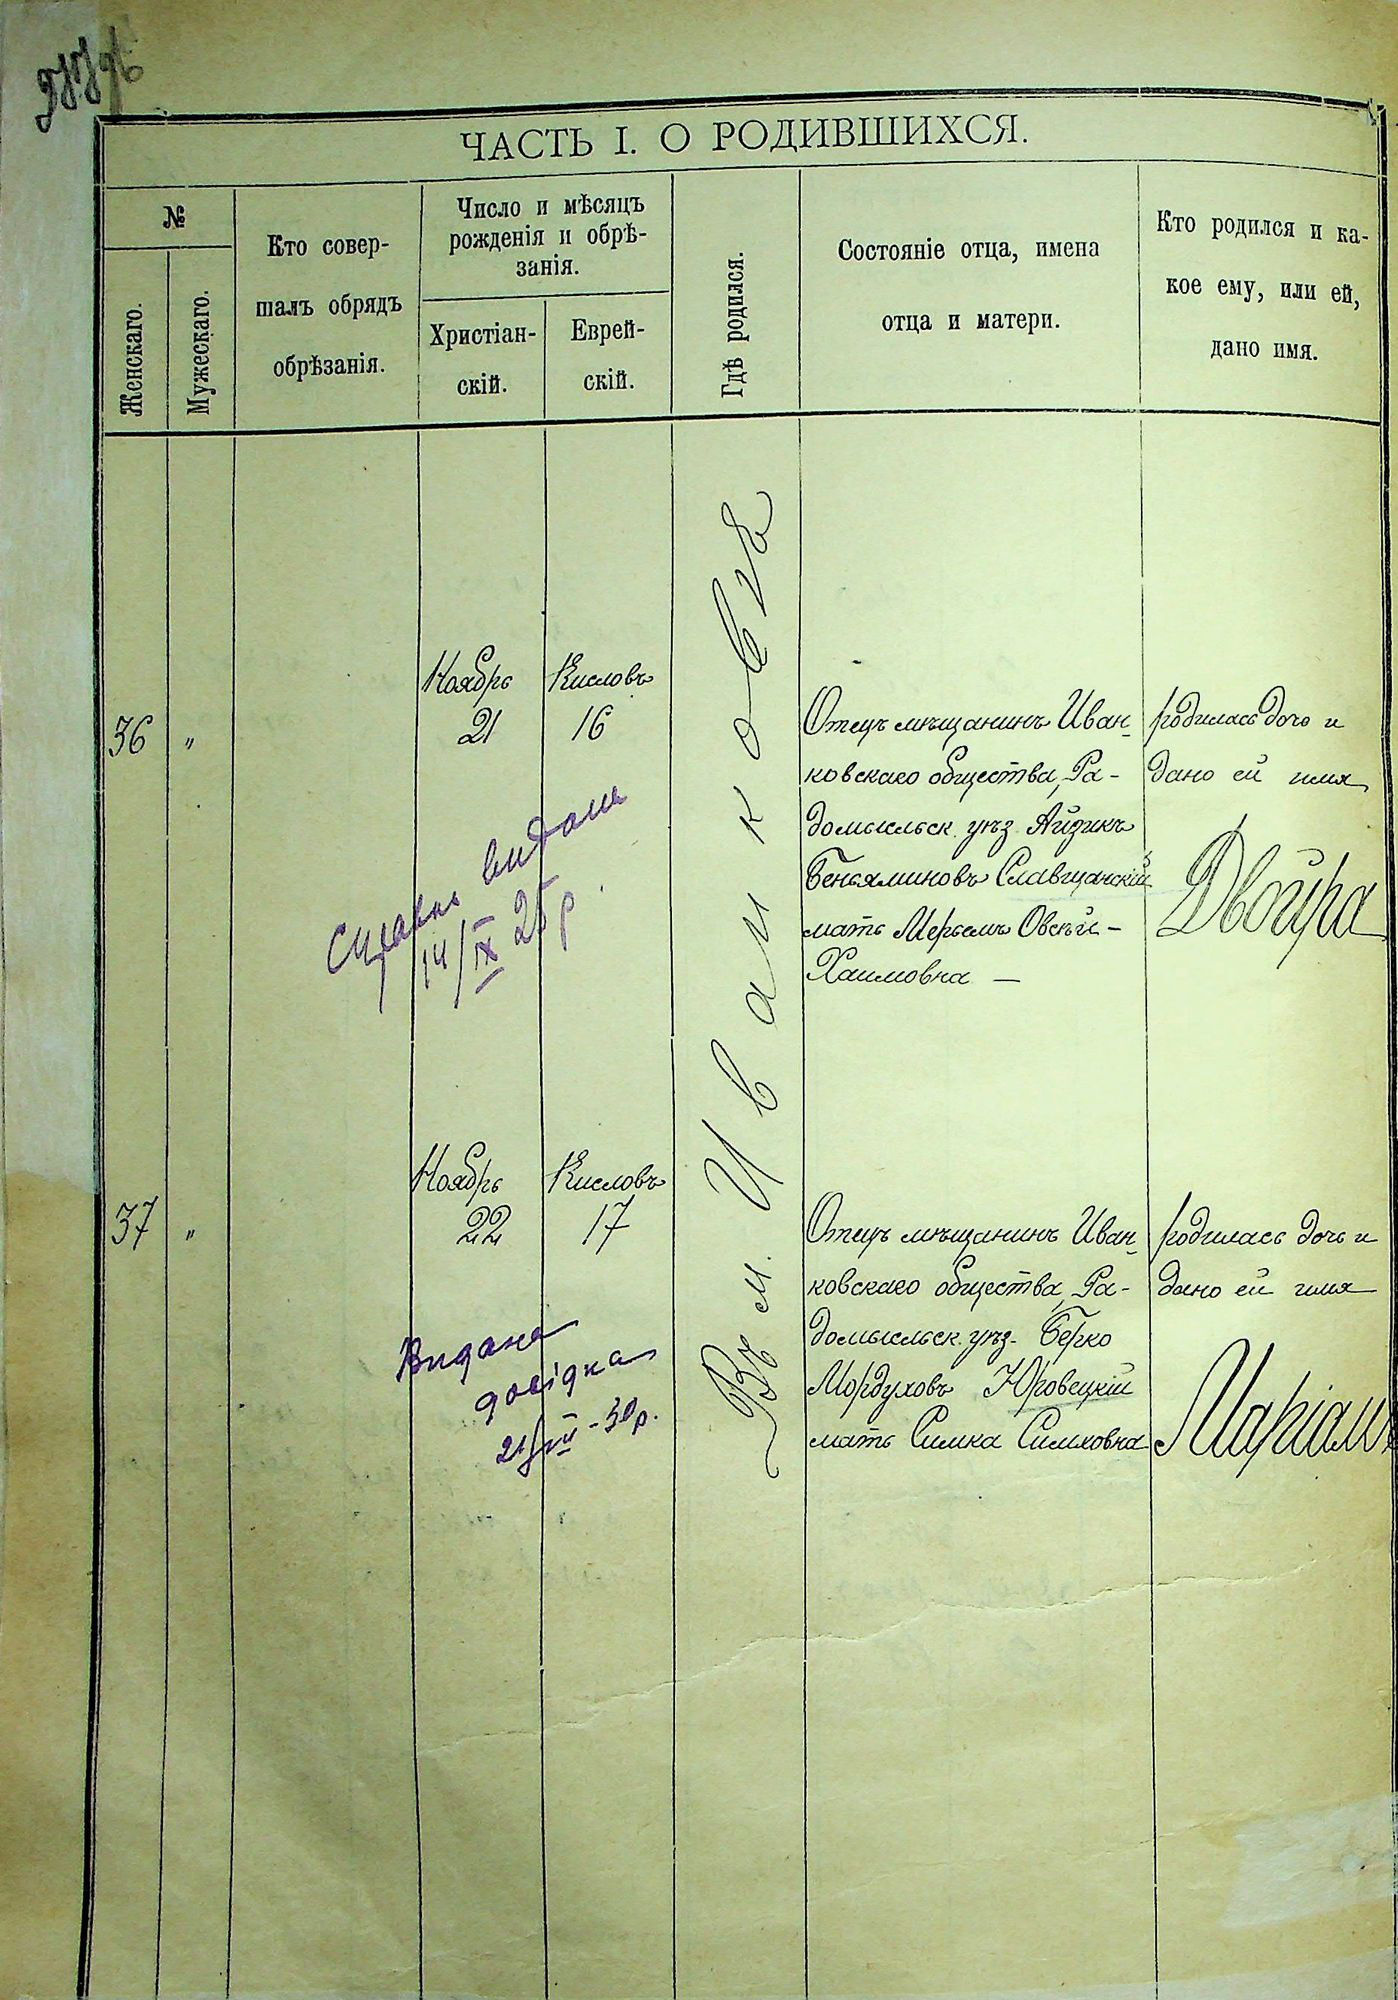 ЧАСТЬ I. О РОДИВШИХСЯ.
№
Женскаго.
Мужескаго.
Кто совер-
шалъ обрядъ
обрѣзанія.
Число и мѣсяцъ
рожденія и обрѣ-
занія.
Христіан-
скій.
Еврей-
скій.
Гдѣ родился.
Состояніе отца, имена
отца и матери.
Кто родился и ка-
кое ему, или ей,
дано имя.
Въ м. Иванковѣ
36 "
Ноябрь
21
Кисловъ
16
Отецъ мѣщанинъ Иван-
ковскаго общества, Ра-
домысльск. уѣз. Айзикъ
Беньяминовъ Славщанскій
мать Мерьемъ Овсѣй-
Хаимовна —
родилась дочь и
дано ей имя
Двойра
видана
14/IX 25 р.
37 "
Ноябрь
22
Кисловъ
17
Отецъ мѣщанинъ Иван-
ковскаго общества, Ра-
домысльск. уѣз. Берко
Мордуховъ Юровецкій
мать Симка Симховна
родилась дочь и
дано ей имя
Маріамъ
Видана
довідка